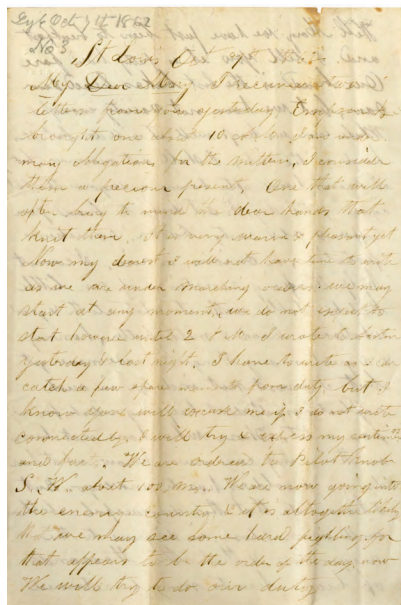 Oct 9th 1862
No 3
St Louis Oct 9th 62
My Dear Mary I received two
letters from you yesterday
brought one about 10 o clock
many obligations for the mittens, I consider
them a precious present, One that will
often bring to mind the dear hands that
knit them. It is very warm & pleasant yet
Now my dearest I will not have time to write
as we are under marching orders. we may
start at any moment, we do not expect to
start however until 2 P.M. I wrote to
yesterday & last night. I have to write as I can
catch a few spare from duty but I
know you will excuse me if I do not write
connectedly. I will try & express my
and We are ordered to Pilot Knob
S. W. about 100 Ms. We are now going into
the enemies country & it is altogether likely
that we may see some hard fighting for
that appears to be the order of the day now
We will try to do our duty